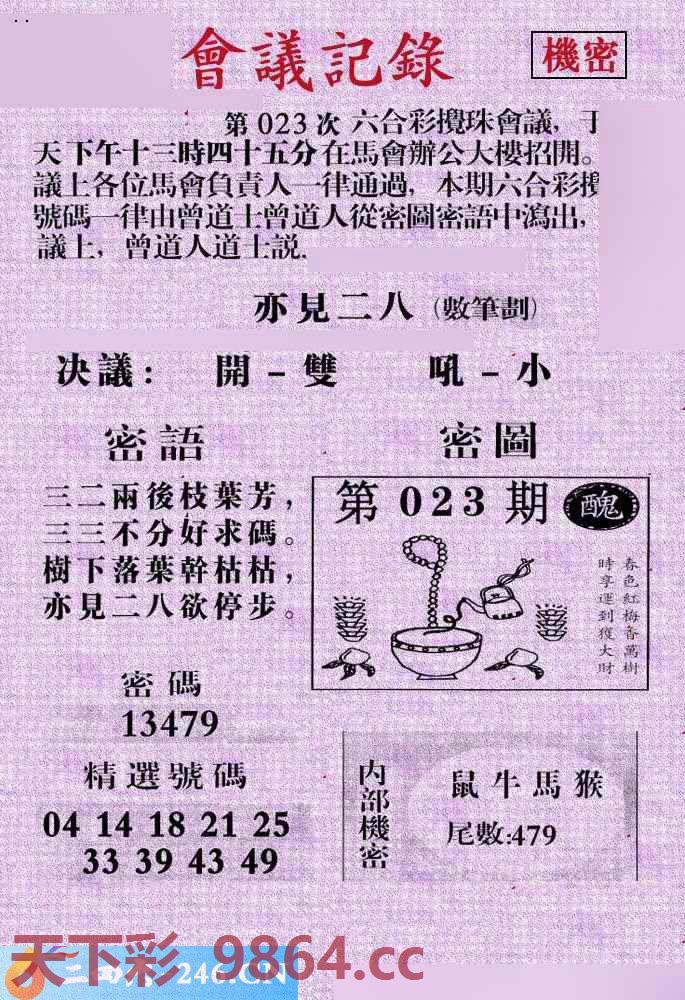 會議記錄
機密
第 023 次 六合彩攪珠會議，于
天下午十三時四十五分在馬會辦公大樓招開。
議上各位馬會負責人一律通過，本期六合彩攪
號碼一律由曾道士曾道人從密圖密語中瀉出，
議上，曾道人道士説．
亦見二八（數筆劃）
决議： 開－雙 吼－小
密語
三二兩後枝葉芳，
三三不分好求碼。
樹下落葉幹枯枯，
亦見二八欲停步。
密圖
第 023 期 醜
春色紅梅香萬樹
時享運到獲大財
密碼
13479
精選號碼
04 14 18 21 25
33 39 43 49
内部機密
鼠牛馬猴
尾數:479
天下彩 9864.cc
246.CN